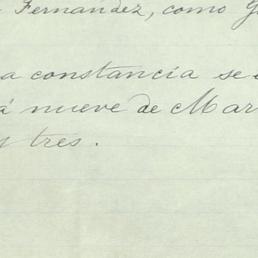 Fernandez, como
a constancia se
á nueve de Mar
y tres.